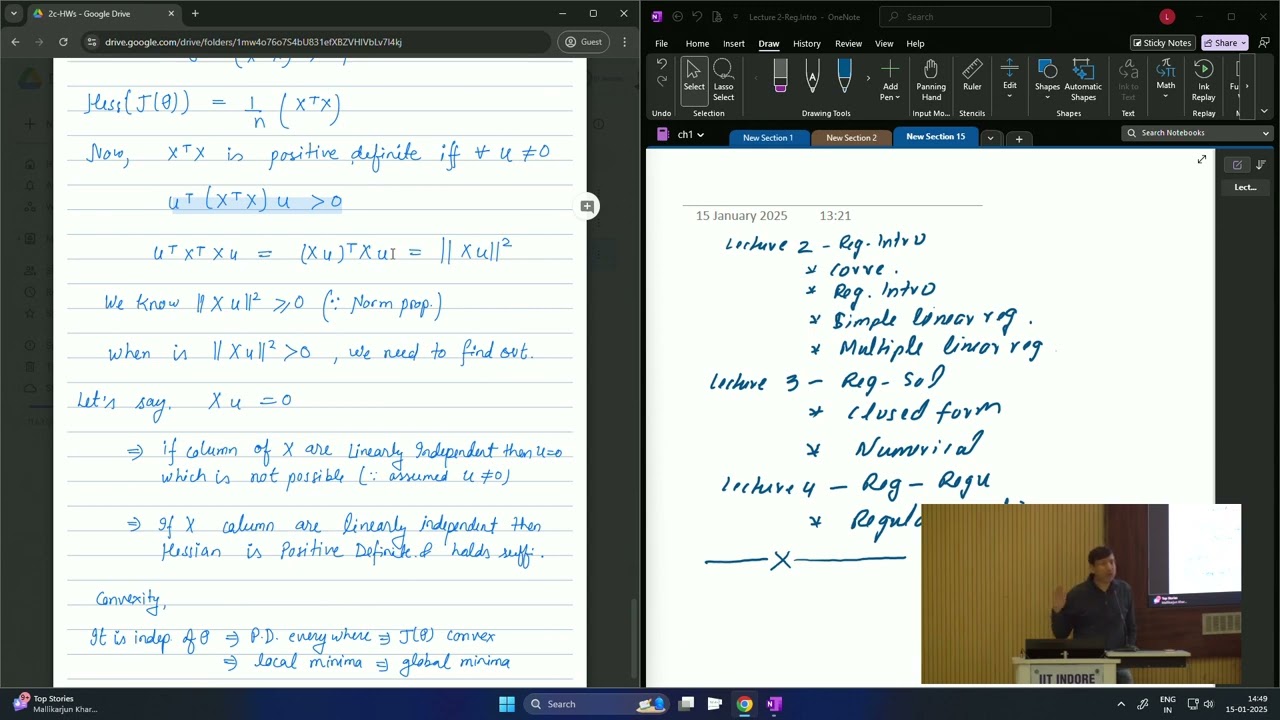 2c-HWs - Google Drive
drive.google.com/drive/folders/1mw4o76o7S4bU831efXBZVHIVbLv7I4kj
Guest
Hess(J(θ)) = 1/n (XᵀX)
Now, XᵀX is positive definite iff ∀ u ≠ 0
uᵀ (XᵀX) u > 0
uᵀXᵀXu = (Xu)ᵀXu = ||Xu||²
We know ||Xu||² ⩾ 0 (∵ Norm prop.)
When is ||Xu||² > 0, we need to find out.
Let's say. Xu = 0
⇒ if column of X are Linearly Independent then u=0
which is not possible (∵ assumed u ≠ 0)
⇒ If X column are linearly independent then
Hessian is Positive Definite & holds suffi.
Convexity,
It is indep. of θ ⇒ P.D. everywhere ⇒ J(θ) convex
⇒ local minima ⇒ global minima
Lecture 2-Reg.Intro - OneNote
Search
L
File Home Insert Draw History Review View Help
Sticky Notes
Share
Undo
Select
Lasso Select
Add Pen
Panning Hand
Ruler
Edit
Shapes
Automatic Shapes
Ink to Text
Math
Ink Replay
Fu
Selection
Drawing Tools
Input Mo...
Shapes
Text
Math
Replay
ch1
New Section 1
New Section 2
New Section 15
Search Notebooks
Lect...
15 January 2025 13:21
Lecture 2 - Reg. Intro
* Corre.
* Reg. Intro
* Simple linear reg.
* Multiple linear reg
Lecture 3 - Reg - Sol
* Closed form
* Numerical
Lecture 4 - Reg - Regu
* Regula
X
IIT INDORE
Top Stories
Mallikarjun Khar...
Search
ENG
IN
14:49
15-01-2025